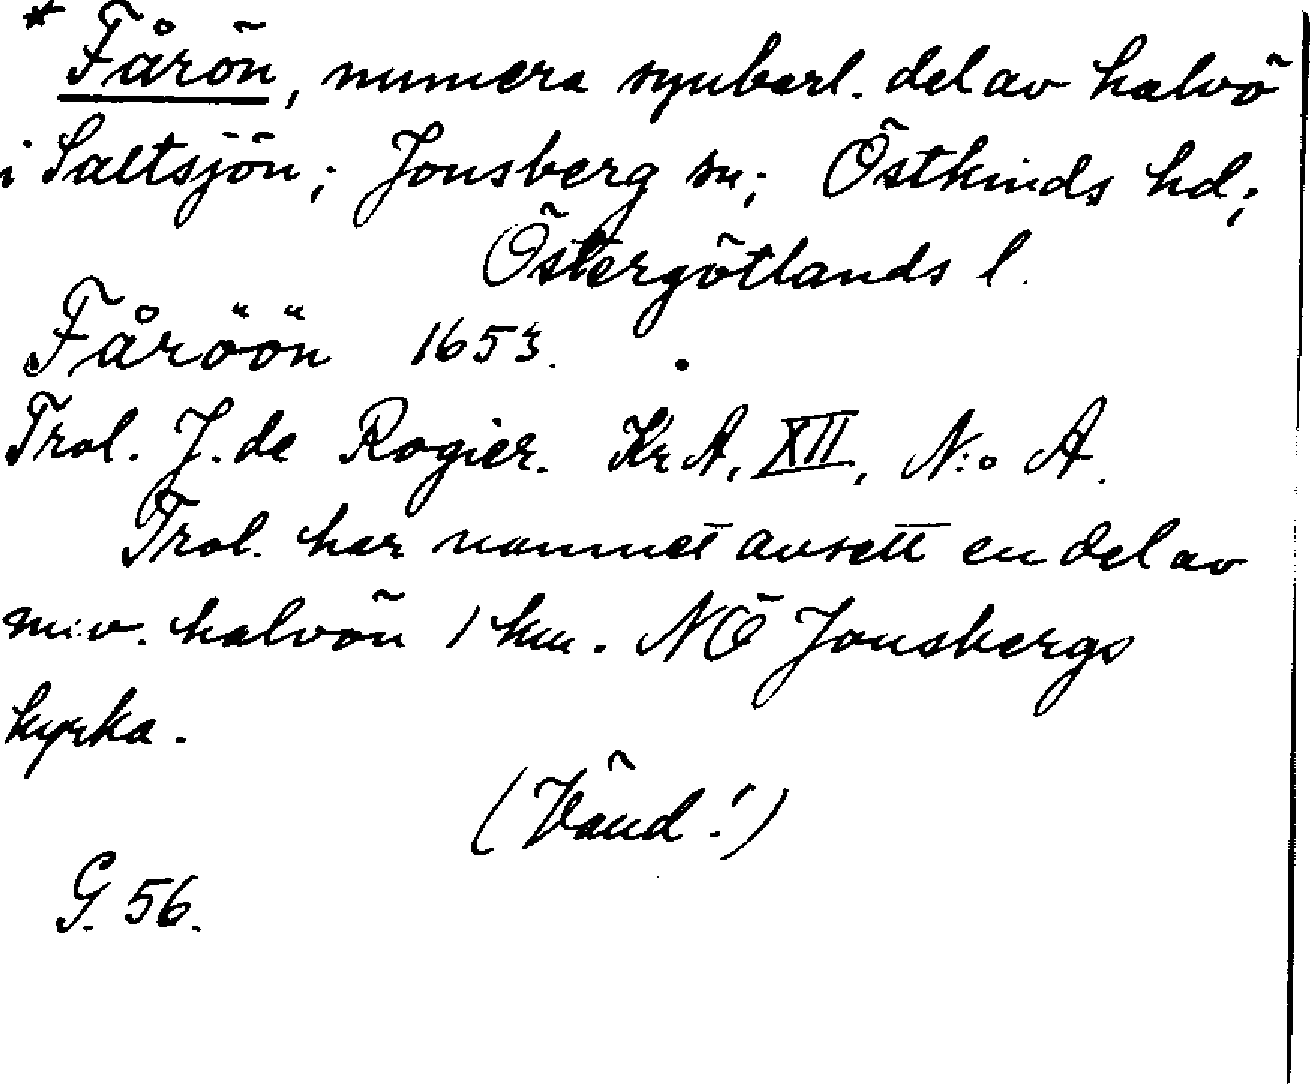 * Fårön, numera synbarl. del av halvö
i Saltsjön; Jonsberg sn; Östkinds hd;
Östergötlands l.
Fåröön 1653.
Trol. J. de Rogier. Kr A, XII, N:o A.
Trol. har namnet avsett en del av
nuv. halvön 1 km. NÖ Jonsbergs
kyrka.
(Vänd!)
G. 56.